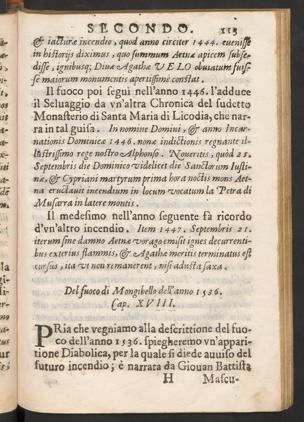 SECONDO. 113
& iacturæ incendio, quod anno circiter 1444. euenisse
in historijs diximus, quo summum Aetnæ apicem subse-
disse, ignibusq; Diuæ Agathæ VELO obuiatum fuis-
se maiorum monumentis apertissimè constat.
Il fuoco poi seguì nell'anno 1446. l'adduce
il Seluaggio da vn'altra Chronica del sudetto
Monasterio di Santa Maria di Licodia, che nar-
ra in tal guisa. In nomine Domini, & anno Incar-
nationis Dominicæ 1446. nonæ indictionis regnante il-
lustrissimo rege nostro Alphonso. Noueritis, quòd 25.
Septembris die Dominico videlicet die Sanctorum Iusti-
næ, & Cypriani martyrum prima hora noctis mons Aet-
na eructauit incendium in locum vocatum la Petra di
Musarra in latere montis.
Il medesimo nell'anno seguente fà ricordo
d'vn'altro incendio. Item 1447. Septembris 21.
iterum sine damno Aetnæ vorago emisit ignes decurrenti-
bus exterius flammis, & Agathæ meritis terminatus est
cursus, ita vt non remanerent, nisi adusta saxa.
Del fuoco di Mongibello dell'anno 1536.
Cap. XVIII.
PRia che vegniamo alla descrittione del fuo-
co dell'anno 1536. spiegheremo vn'appari-
tione Diabolica, per la quale si diede auuiso del
futuro incendio; è narrata da Giouan Battista
H Mascu-